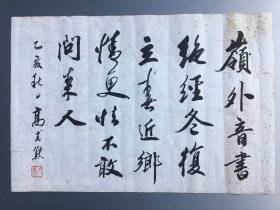 嶺外音書
絶經冬復
立春近鄉
情更怯不敢
問來人
乙亥秋